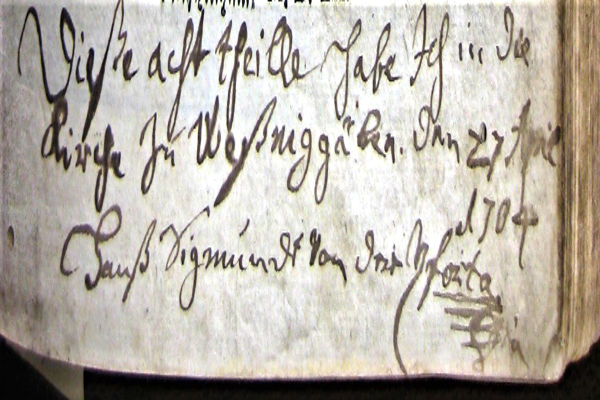 Dieße acht theille habe Ich in die
Kirche Zu Weßnig gäben. den 27 April
1704
Hanß Sigmundt Von der Pforta